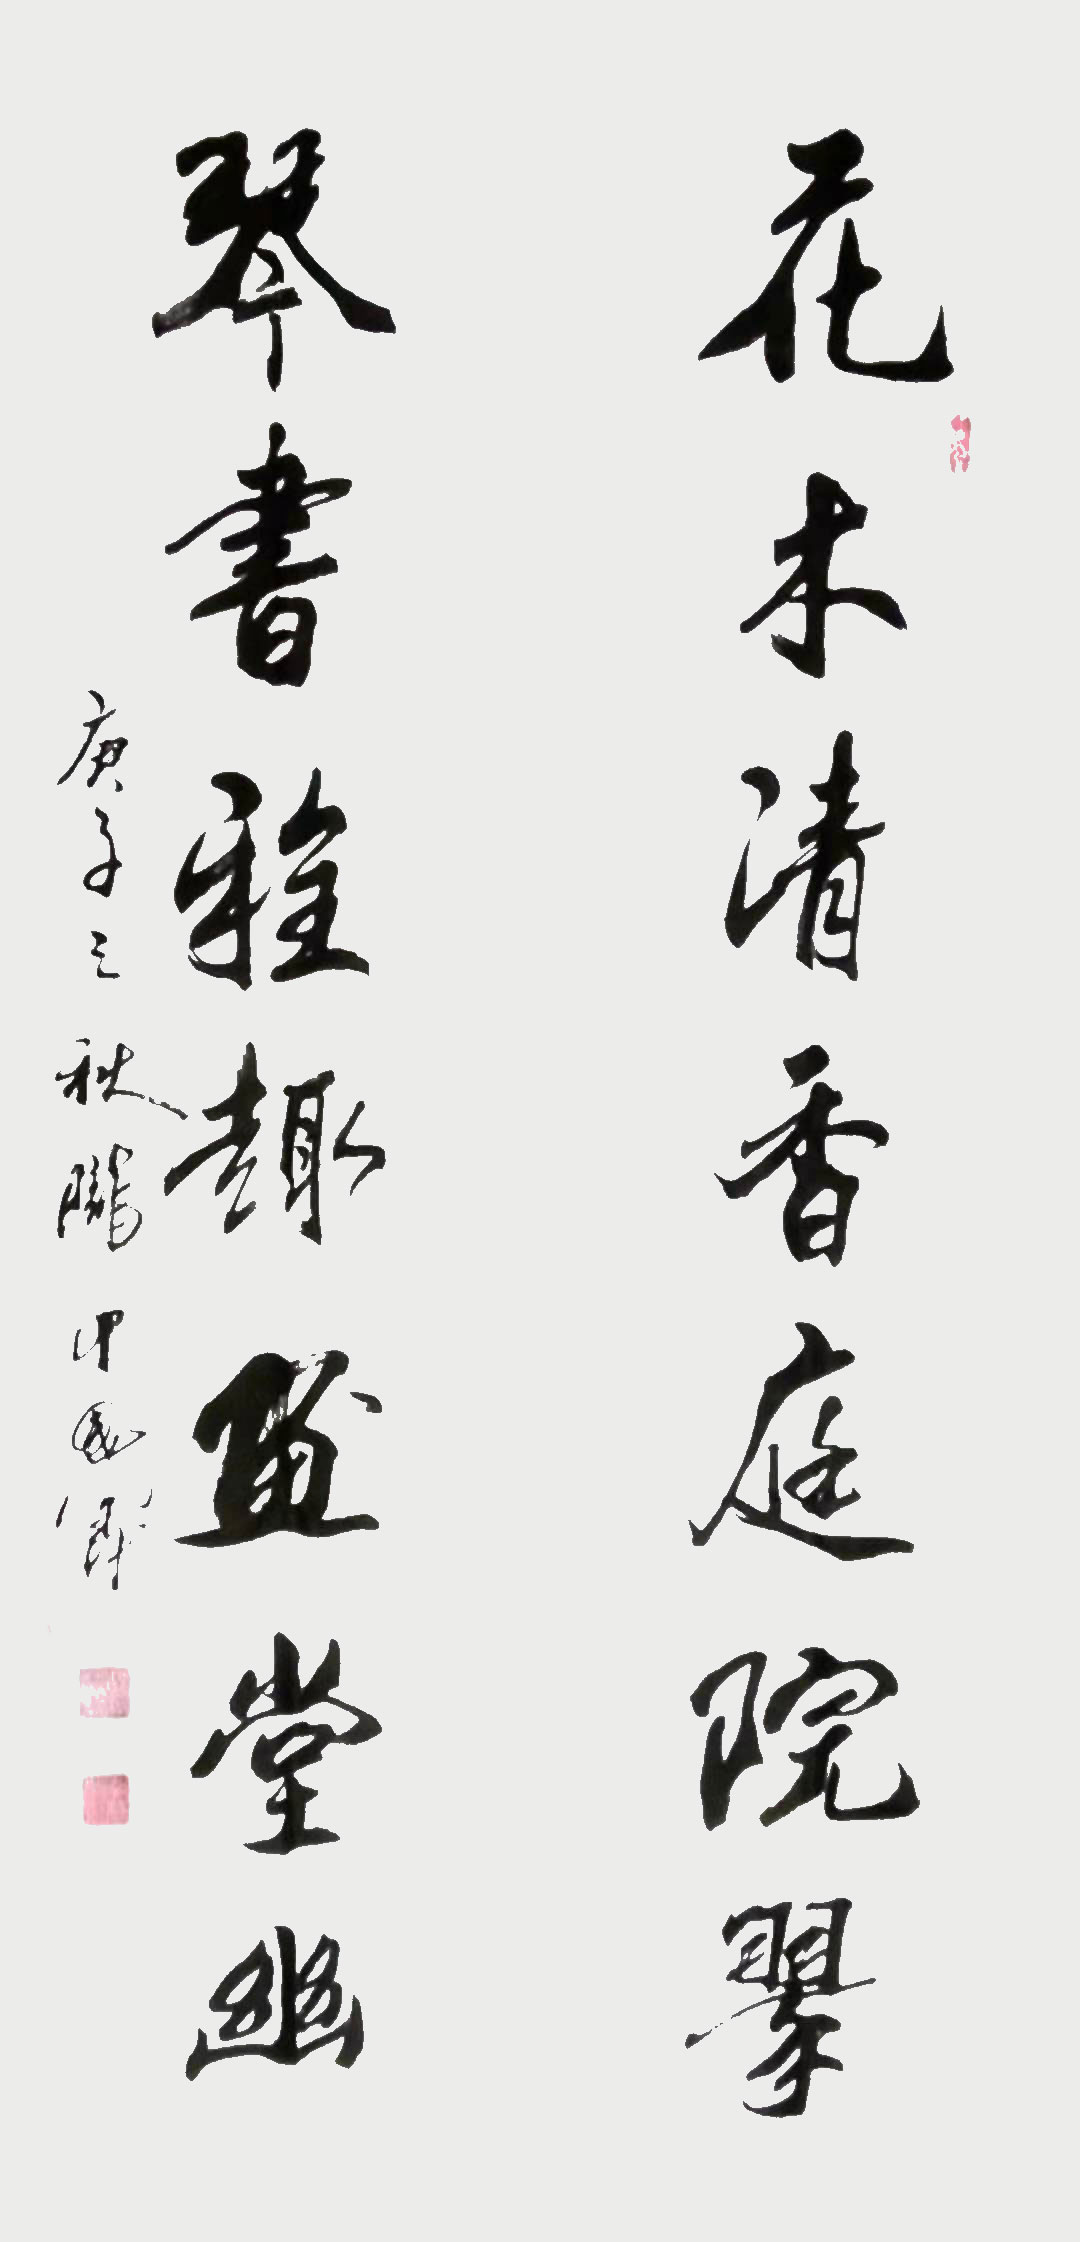 花木清香庭院翠
琴書雅趣畫堂幽
庚子之秋鵬中國